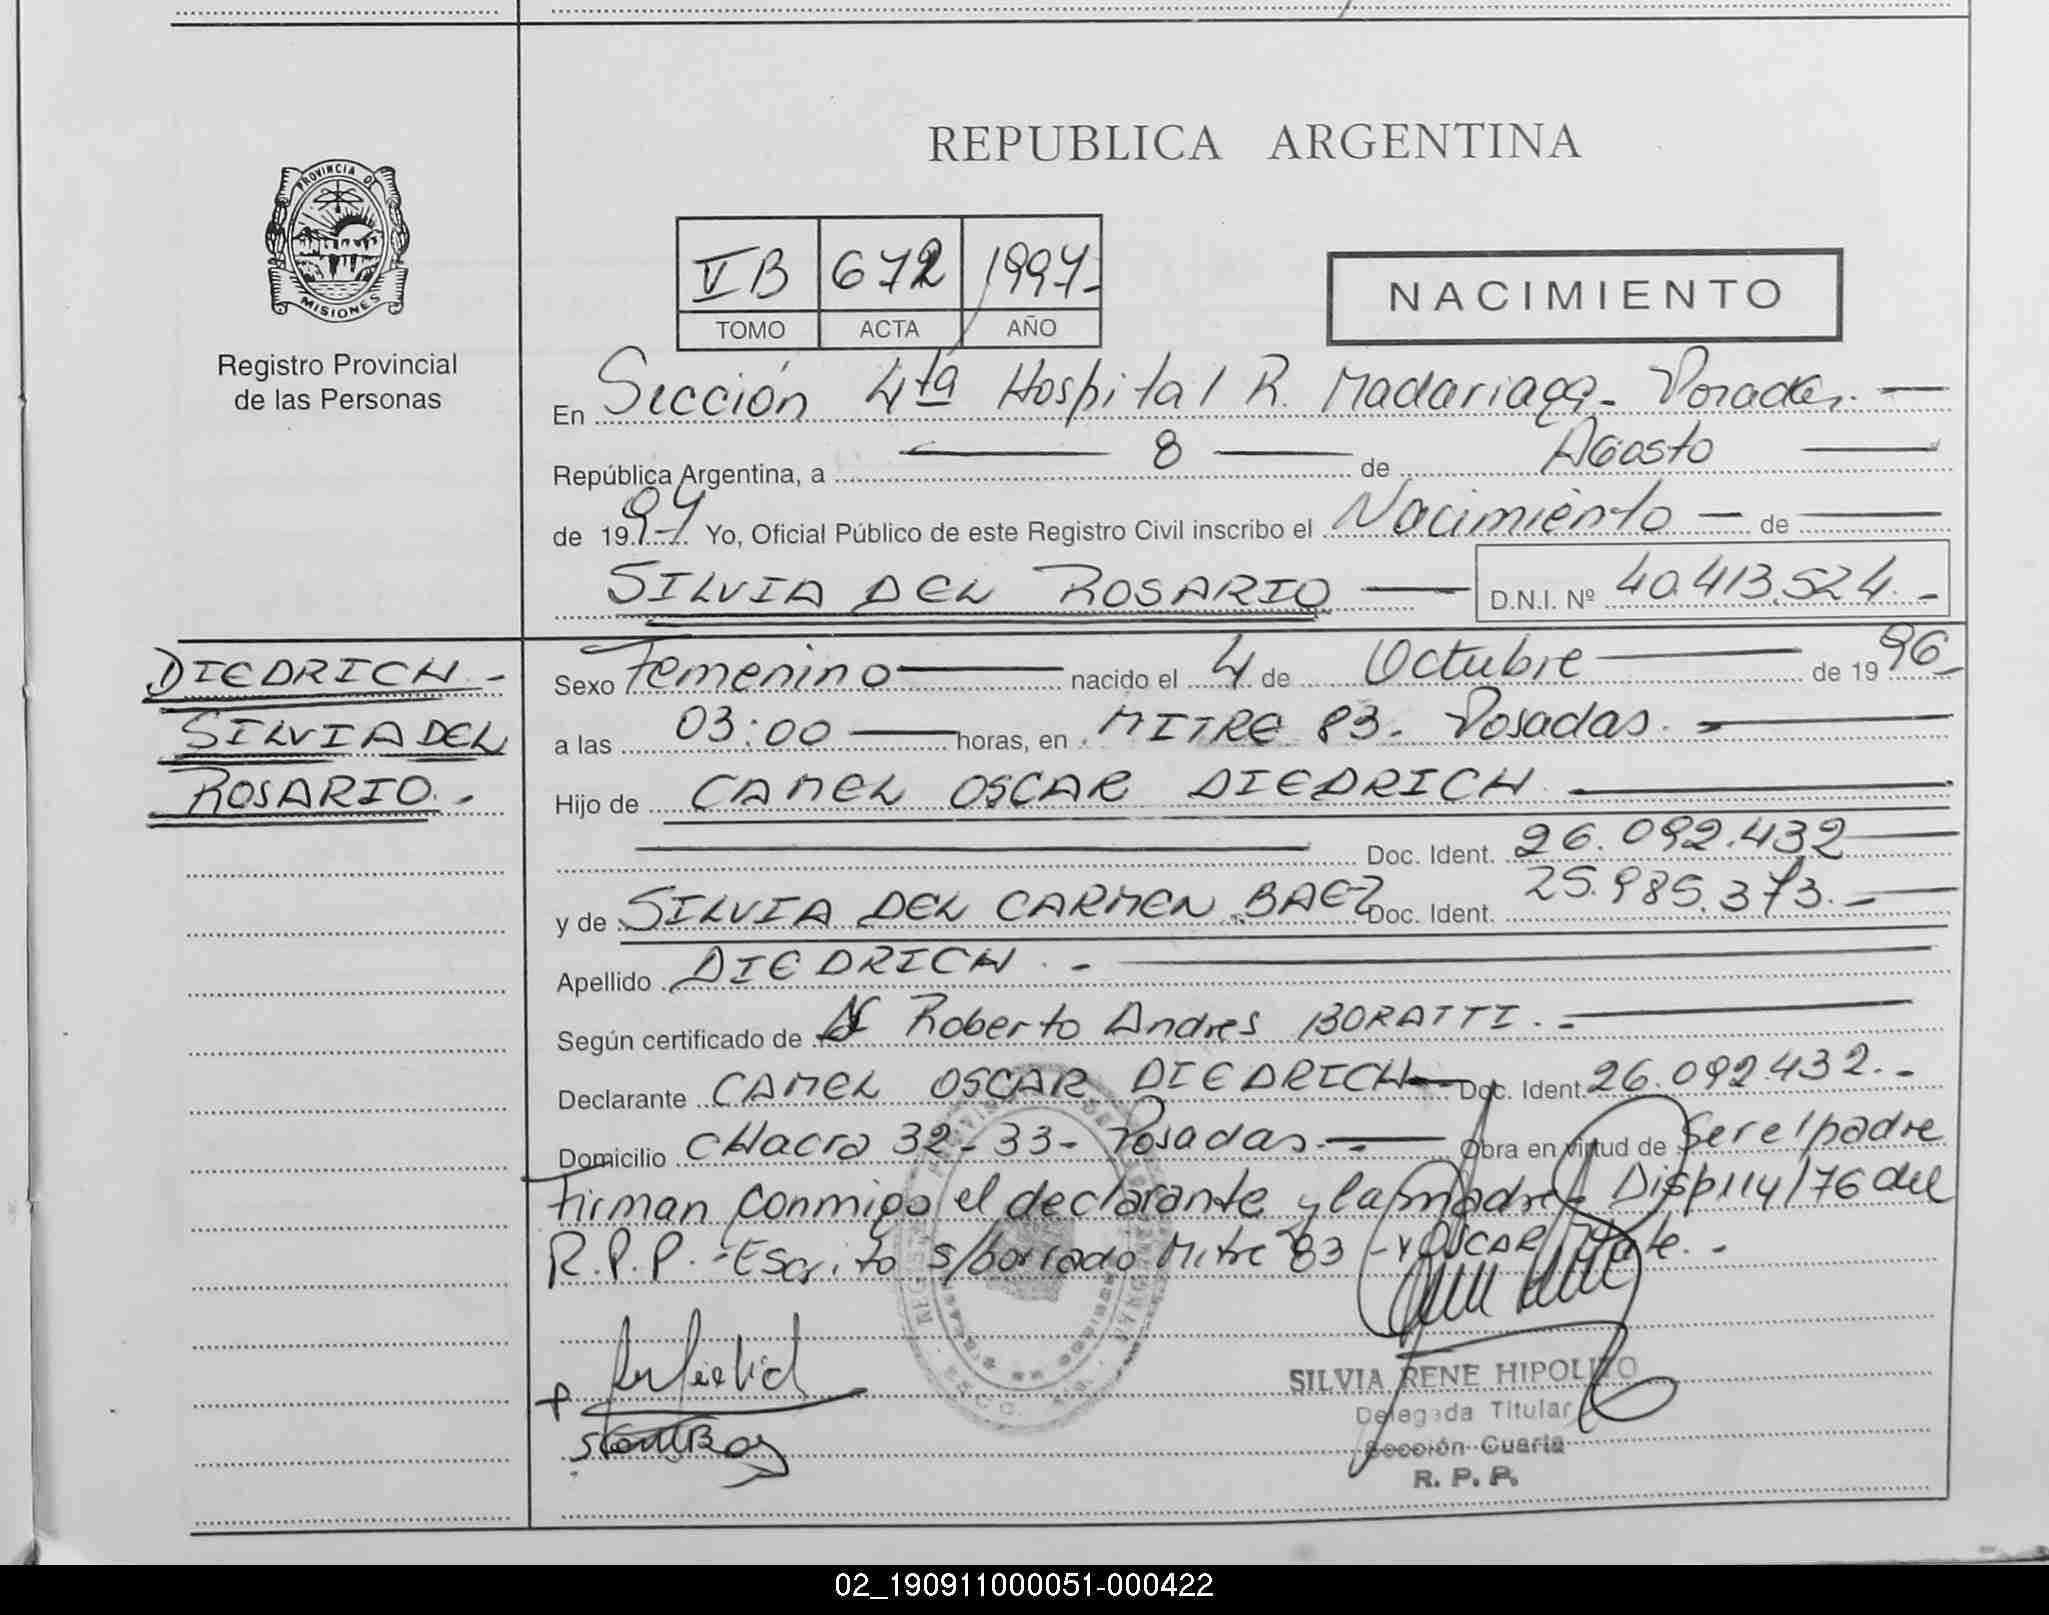 REPUBLICA ARGENTINA
PROVINCIA DE
MISIONES
Registro Provincial
de las Personas
V B 672 1997.-
TOMO ACTA AÑO
NACIMIENTO
En Sección 4ta Hospital R. Madariaga - Posadas. —
República Argentina, a — 8 — de Agosto —
de 1997 Yo, Oficial Público de este Registro Civil inscribo el Nacimiento — de —
SILVIA DEL ROSARIO — D.N.I. Nº 40.413.524.-
DIEDRICH -
SILVIA DEL
ROSARIO. -
Sexo Femenino — nacido el 4 de Octubre — de 1996-
a las 03:00 — horas, en MITRE 83. Posadas. —
Hijo de CAMEL OSCAR DIEDRICH —
— Doc. Ident. 26.092.432 —
y de SILVIA DEL CARMEN BAEZ Doc. Ident. 25.985.373. —
Apellido DIEDRICH . - —
Según certificado de Roberto Andres BORATTI. - —
Declarante CAMEL OSCAR DIEDRICH — Doc. Ident. 26.092.432. -
Domicilio CHacra 32-33- Posadas. — Obra en virtud de Ser el padre
Firman conmigo el declarante y la madre Disp 114/76 del
R.P.P. - Escrito s/borrado Mitre 83 - y OSCAR Vale. -
SILVIA RENE HIPOLITO
Delegada Titular
Sección Cuarta
R. P. P.
02_190911000051-000422